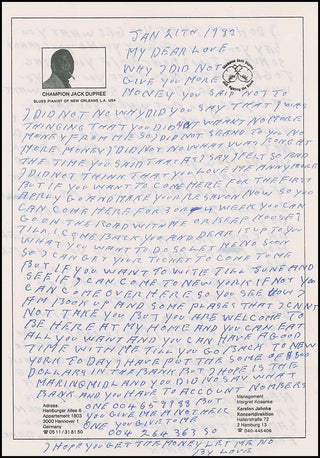 JAN 21TH 1982
MY DEAR LOVE
CHAMPION JACK DUPREE
BLUES PIANIST OF NEW ORLEANS LA. USA
WHY I DID NOT
GIVE YOU MORE
MONEY YOU SAID NOT TO
I DID NOT NO WHY DID YOU SAY THAT I WAS
THINGING THAT YOU DID NOT WANT NO MORE
MONEY FROM ME SO I DID NOT SEAND TO YOU NO
MORE MONEY I DID NOT NO WHAT WAS RONG AT
THE TIME YOU SAID THAT AS I SAY I FELT SO BAD
I DID NOT THINK THAT YOU LOVE ME ANNY MORE
BUT IF YOU WANT TO COME HERE FOR TWO FIRST
APPLY GO AND MAKE YOUR RESAVON NOW SO YOU
CAN COME HERE FOR 3 OR 4 WEEK YOU CAN
GO ON THE ROAD WITH ME OR KEEP HOUSE
TILL I COME BACK YOU AND DEAR IT UP TO YOU
WHAT YOU WANT TO DO SO LET ME NO SOON
SO I CAN GET YOUR TICKET TO COME TO ME
BUT IF YOU WANT TO WITE TILL JUNE AND
SEE IF I CAN COME TO NEW YORK IF NOT YOU
CAN COME OVER HERE SO YOU SEE HOW I
AM BOOK UP AND SOME PLASES THAT I CAN'T
NOT TAKE YOU BUT YOU ARE WELCOME TO
BE HERE AT MY HOME AND YOU CAN EAT
ALL YOU WANT AND YOU CAN HAVE A GOOD
TIME WITH ME TILL YOU GO BACK TO NEW
YORK TO DAY I HAVE PUT THE SOME OF $300
DOLLARS IN THE BANK BUT I HOPE IS THE
MAKING MIDLAND YOU DID NO SAY WHAT
BANK AND YOU HAVE TO ACCOUNT NOMBERS
ONE 00465 9998 BUT
YOU GIVE ME A NOTHEIR
ONE YOU GIVE ME
004 264 36 30
Adresse:
Hamburger Allee 6
Appartement 1803
3000 Hannover 1
Germany
☎ 05 11 / 31 81 50
Management
Margret Kosanke
Karsten Jahnke
Konzertdirektion
Hallerstraße 72
2 Hamburg 13
☎ 040-445406
I HOPE YOU GET THE MONEY LET ME NO
BY LOVE